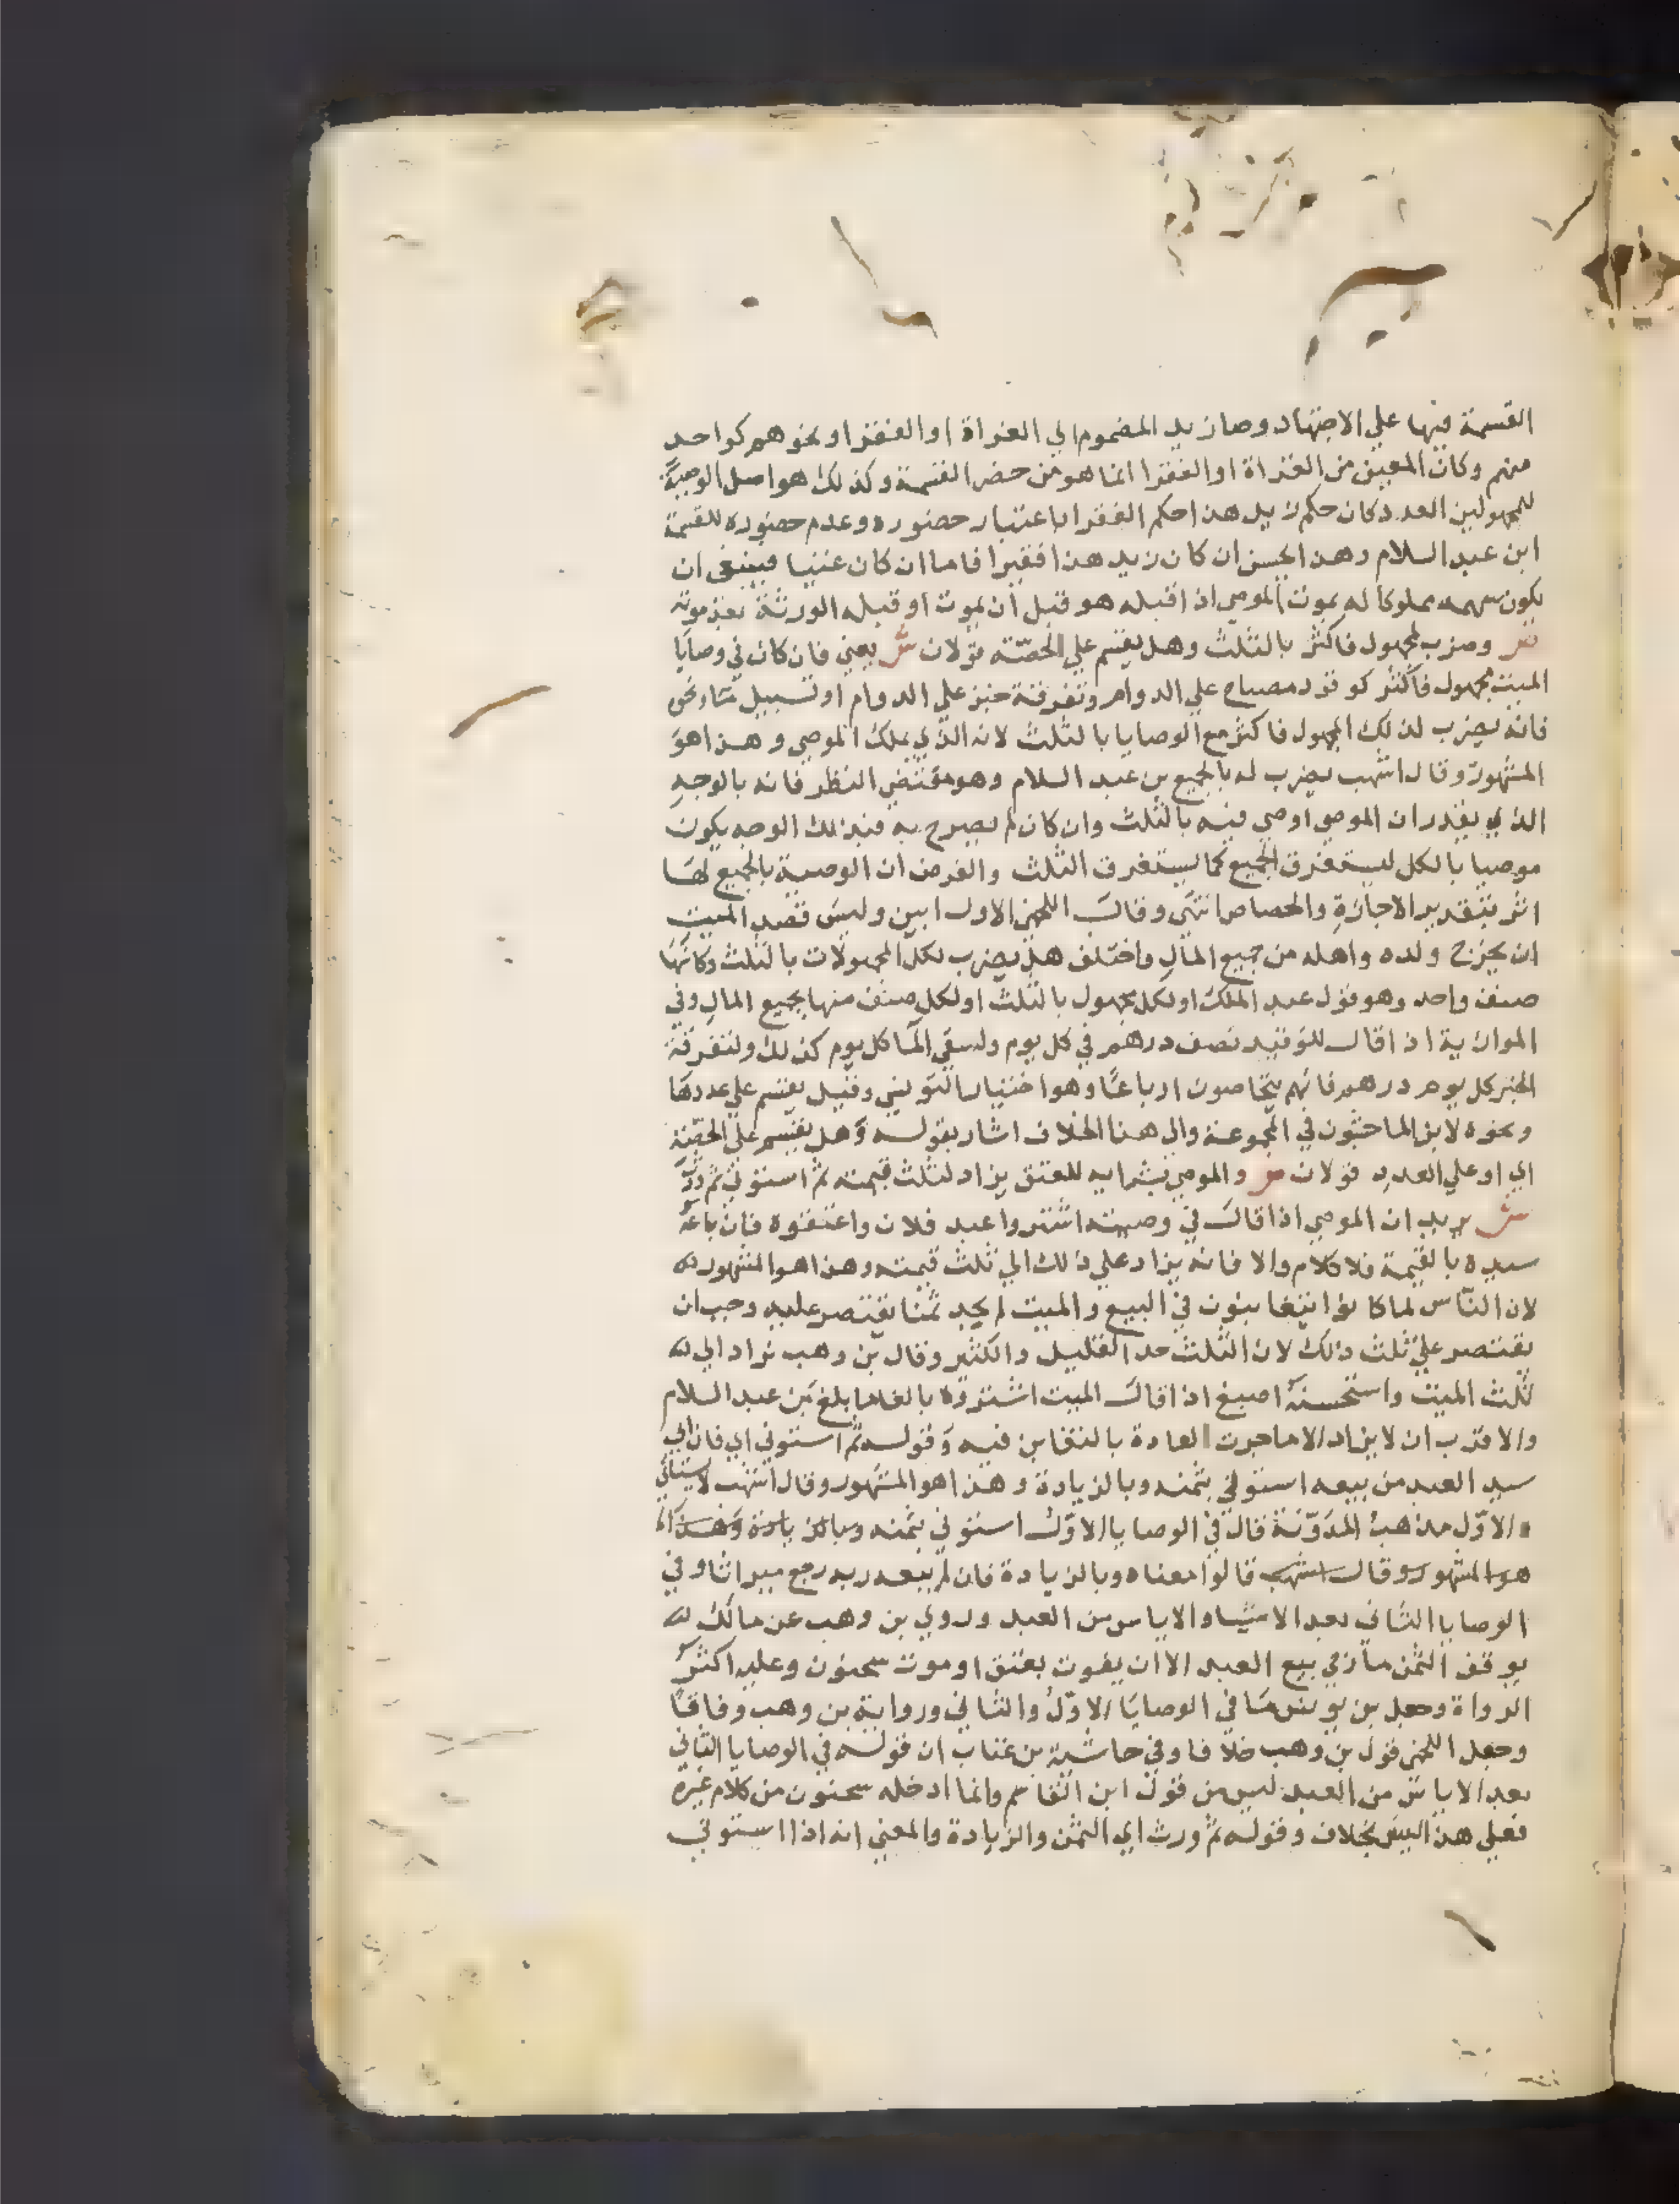 القسمة فيها علي الاجتهاد وصار زيد المضموم الي الغزاة او الفقرا ونحوهم كواحد
منهم وكان المعين من الغزاة او الفقرا انما هو من حضر القسمة وكذلك هو اصل الوصية
للمجهولين العدد كان حكم زيد هذا حكم الفقرا باعتبار حضوره وعدم حضوره للقسمة
ابن عبد السلام وهذا يحسن ان كان زيد هذا فقيرا فاما ان كان غنيا فينبغي ان
يكون سهمه مملوكا له بموت الموصي اذا قبله هو قبل ان يموت او قبله الورثة بعد موته
ص وضرب لمجهول فاكثر بالثلث وهل يقسم علي الحصة قولان ش يعني فان كان في وصايا
الميت مجهول فاكثر كوقود مصباح علي الدوام وتفرقة خبز علي الدوام او تسبيل ما ونحو
فانه يضرب لذلك المجهول فاكثر مع الوصايا بالثلث لانه الذي يملك الموصي وهذا هو
المشهور وقال اشهب يضرب له بالجميع بن عبد السلام وهو مقتضي النظر فانه بالوجه
الذي يقدر ان الموصي اوصي فيه بالثلث وان كان لم يصرح به فبذلك الوجه يكون
موصيا بالكل ليستغرق الجميع كما يستغرق الثلث والفرض ان الوصية بالجميع لها
اثر بتقدير الاجازة والحصاص انتهي وقال اللخمي الاول ابين وليس قصد الميت
ان يخرج ولده واهله من جميع المال واختلف هل يضرب لكل المجهولات بالثلث وكانها
صنف واحد وهو قول عبد الملك او لكل مجهول بالثلث او لكل صنف منها بجميع المال وفي
الموازية اذا قال للوقيد نصف درهم في كل يوم ولسقي الما كل يوم كذلك ولتفرقة
الخبز كل يوم درهم فانهم يتحاصون ارباعا وهو اختيار التونسي وقيل يقسم علي عددها
ونحوه لابن الماجشون في المجموعة والي هذا الخلاف اشار بقوله وهل يقسم علي الحصة
اي او علي العدد قولان ص والموصي بشرايه للعتق يزاد لثلث قيمته ثم استوني ثم ورث
ش يريد ان الموصي اذا قال في وصيته اشتروا عبد فلان واعتقوه فان باعه
سيده بالقيمة فلا كلام والا فانه يزاد علي ذلك الي ثلث قيمته وهذا هو المشهور
لان الناس لما كانوا يتغابنون في البيع والميت لم يحد ثمنا يقتصر عليه وجب ان
يقتصر علي ثلث ذلك لان الثلث حد القليل والكثير وقال بن وهب يزاد الي
ثلث الميت واستحسنه اصبغ اذا قال الميت اشتروه بالغا ما بلغ بن عبد السلام
والاقرب ان لا يزاد الا ما جرت العادة بالتغابن فيه وقوله ثم استوني اي فان ابي
سيد العبد من بيعه استوني بثمنه وبالزيادة وهذا هو المشهور وقال اشهب لا يستاني
والاول مذهب المدونة قال في الوصايا الاول استوني بثمنه وبالزيادة وهذا
هو المشهور وقال اشهب قالوا معناه وبالزيادة فان لم يبعه ربه رجع ميراثا وفي
الوصايا الثاني بعد الاستينا والاياس من العبد وروي بن وهب عن مالك
يوقف الثمن ما رجي بيع العبد الا ان يفوت بعتق او موت سحنون وعليه اكثر
الرواة وجعل بن يونس ما في الوصايا الاول والثاني ورواية بن وهب وفاقا
وجعل اللخمي قول بن وهب خلافا وفي حاشية بن عتاب ان قوله في الوصايا الثاني
بعد الاياس من العبد ليس من قول ابن القاسم وانما ادخله سحنون من كلام غيره
فعلي هذا ليس بخلاف وقوله ثم ورث اي الثمن والزيادة والمعني انه اذا استوني